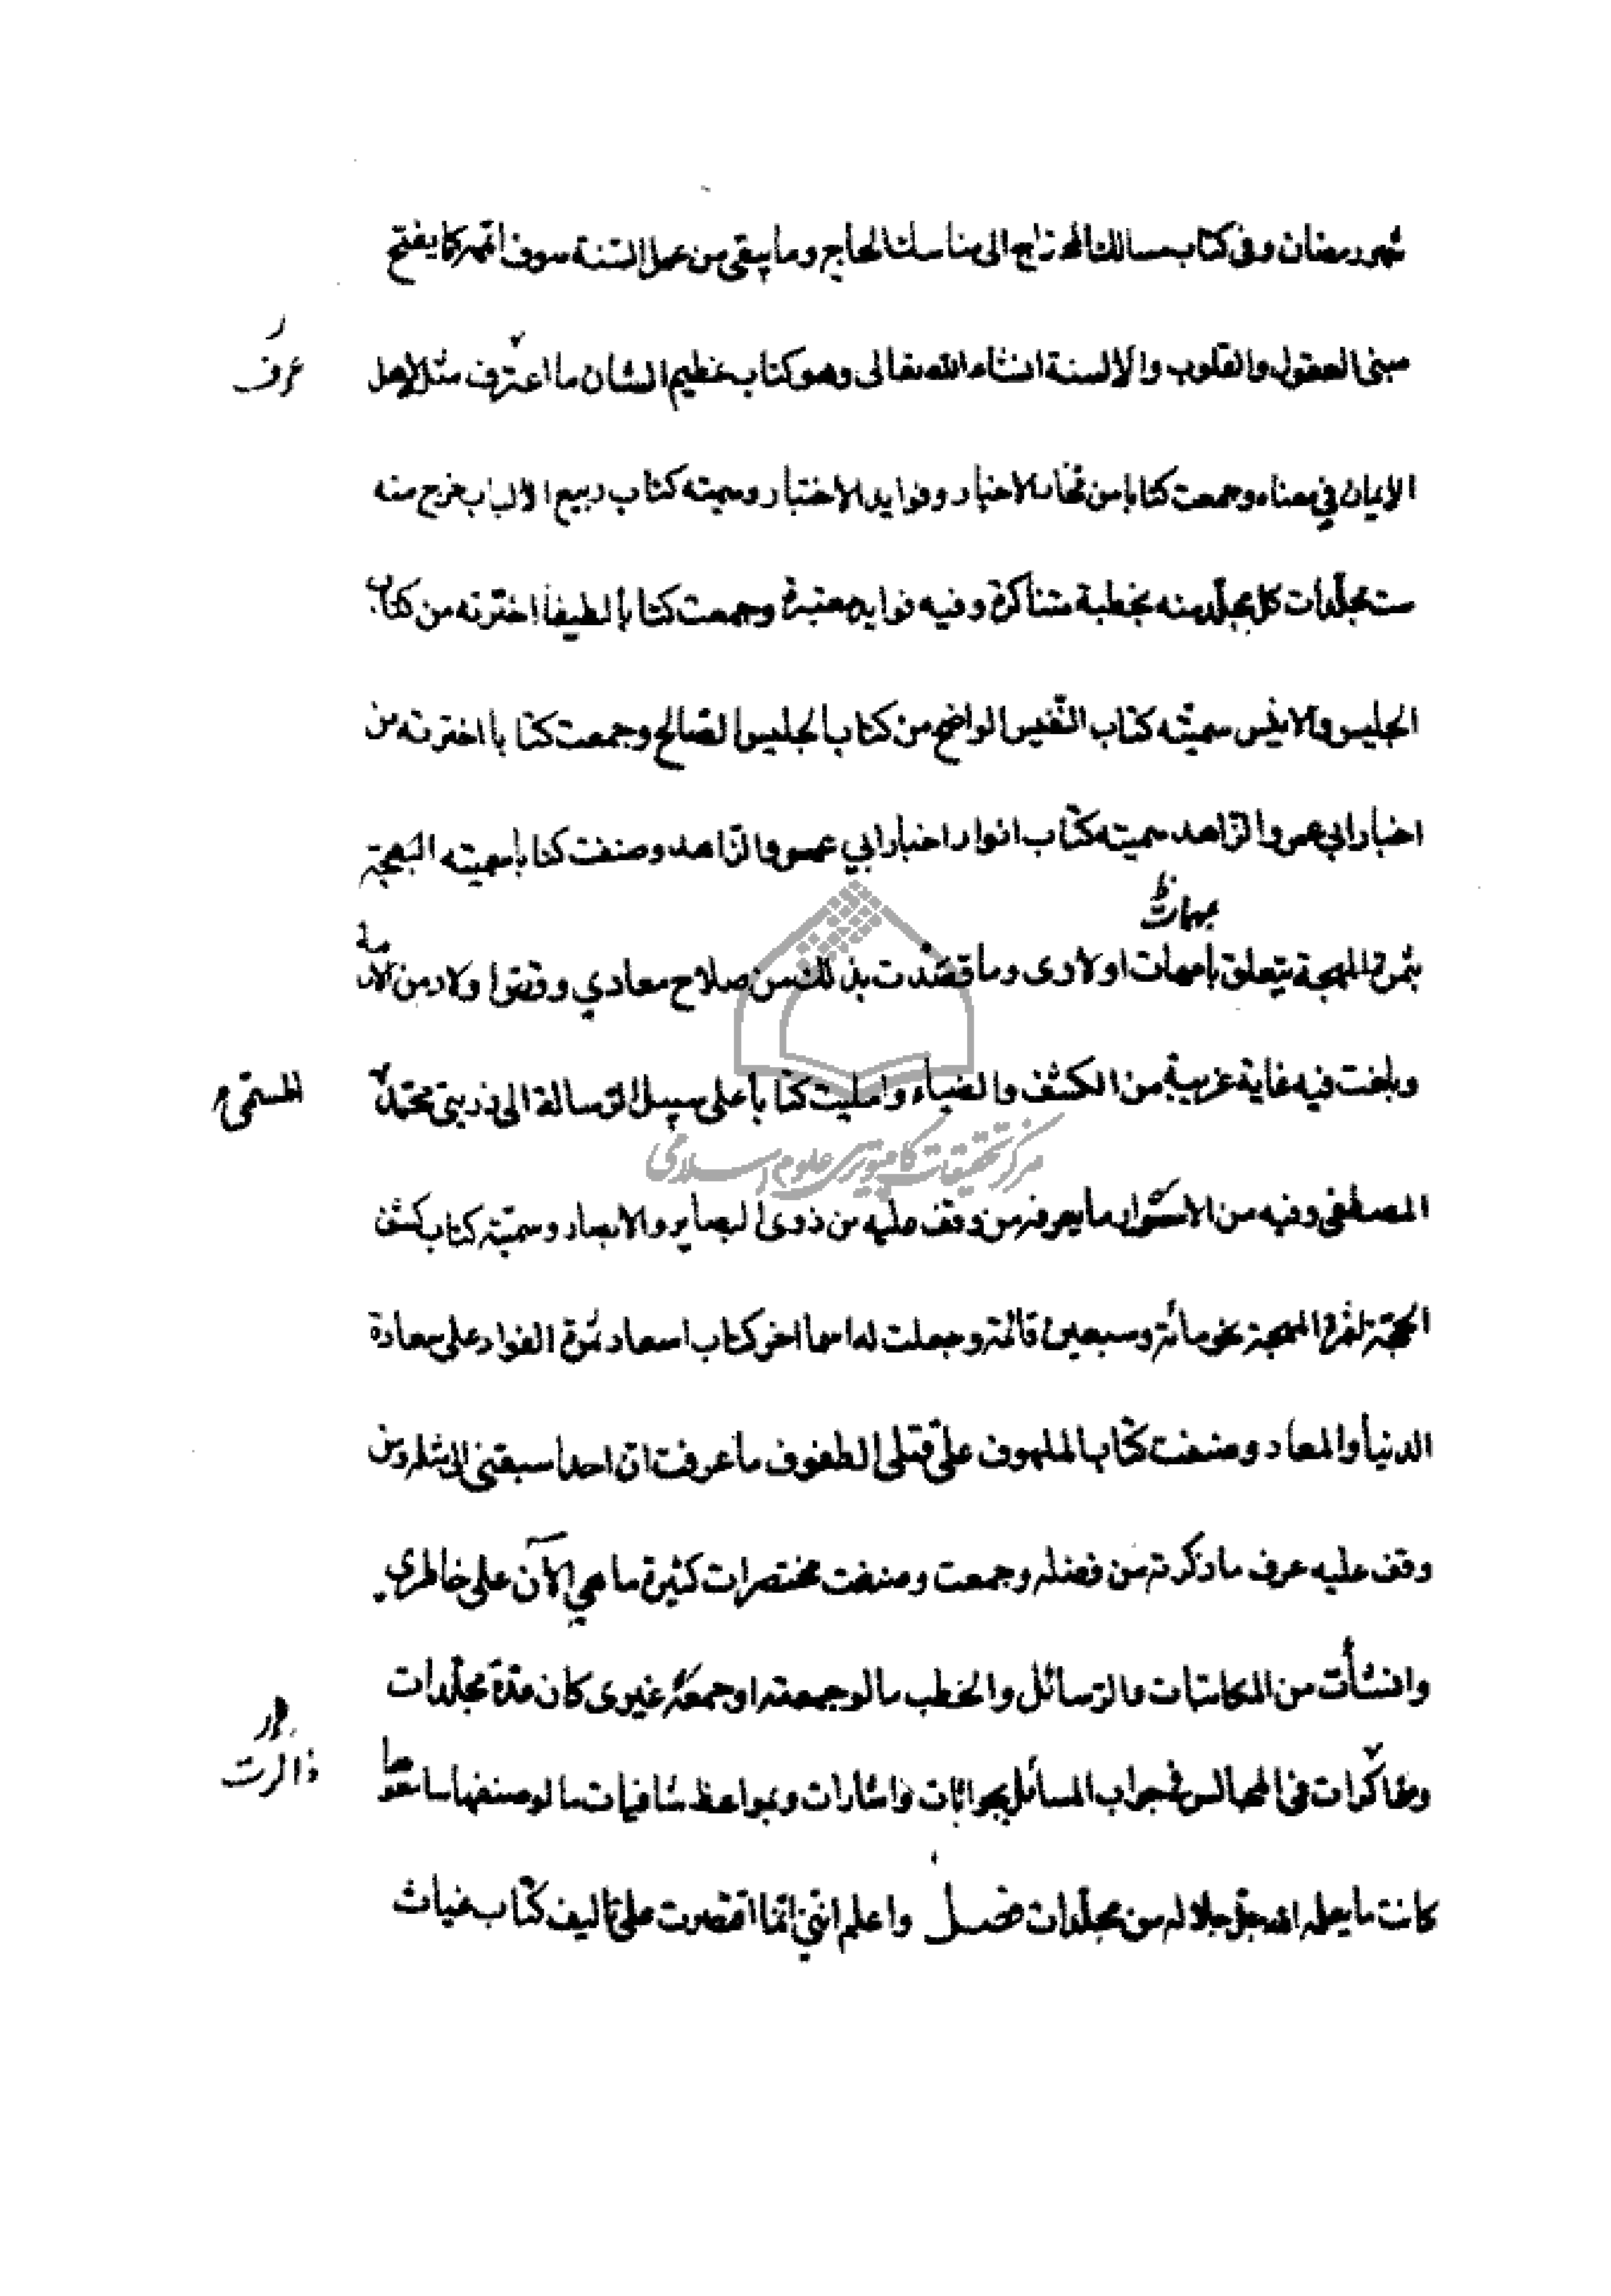 شهر رمضان وفى كتاب مسالك المحتاج الى مناسك الحاج وما يبقى من عمل السّنة سوف اتمّه كما يفتح
مبنى العقول والقلوب والألسنة انشاء الله تعالى وهو كتاب عظيم الشان ما اعترف مثله لاهل
عرف
الايمان في معناه وجمعت كتابا من الاخبار وفوايد الاختبار وسميته كتاب ربيع الألباب خرج منه
ست مجلّدات كل مجلّد منه بخطبة متناكرة وفيه فوايد معتبرة وجمعت كتابا لطيفا اخترته من كتاب
الجليس والانيس سميّته كتاب النّفيس الواضح من كتاب الجليس الصّالح وجمعت كتابا اخترته من
اخبار ابي عمرو الزّاهد سميته كتاب انوار اخبار ابي عمرو الزّاهد وصنفت كتابا سميته البهجة
بمهمات
بثمرة المهجة يتعلق بامهات اولادى وما قصدت بذلك من صلاح معادي و اولاد من
وبلغت فيه غاية غريبة من الكشف والضياء وامليت كتابا على سبيل الرّسالة الى ذريتى محمّد
المسمّى م
المصطفى وفيه من الاسرار ما يعرفه من وقف عليه من ذوى البصاير والابصار وسميّته كتاب كشف
المحجّة لثمرة المهجة نحو مائة وسبعين قائمة وجعلت له اسما اخر كتاب اسعاد ثمرة الفواد على سعادة
الدنيا والمعاد وصنفت كتاب الملهوف على قتلى الطفوف ما عرفت انّ احدا سبقنى الى مثله ومن
وقف عليه عرف ما ذكرته من فضله وجمعت وصنفت مختصرات كثيرة ما هي الآن على خاطري
وانشأت من المكاتبات والرّسائل والخطب ما لو جمعته او جمعه غيرى كان عدّة مجلّدات
ومذاكرات فى المجالس في جواب المسائل بجوابات واشارات وبمواعظ شافيات ما لو صنفها سامعوها
كانت ما يعلمه الله جلّ جلاله من مجلّدات فصل واعلم انّني انّما اقتصرت على تاليف كتاب غياث
مركز تحقيقات كامپيوترى علوم اسلامى